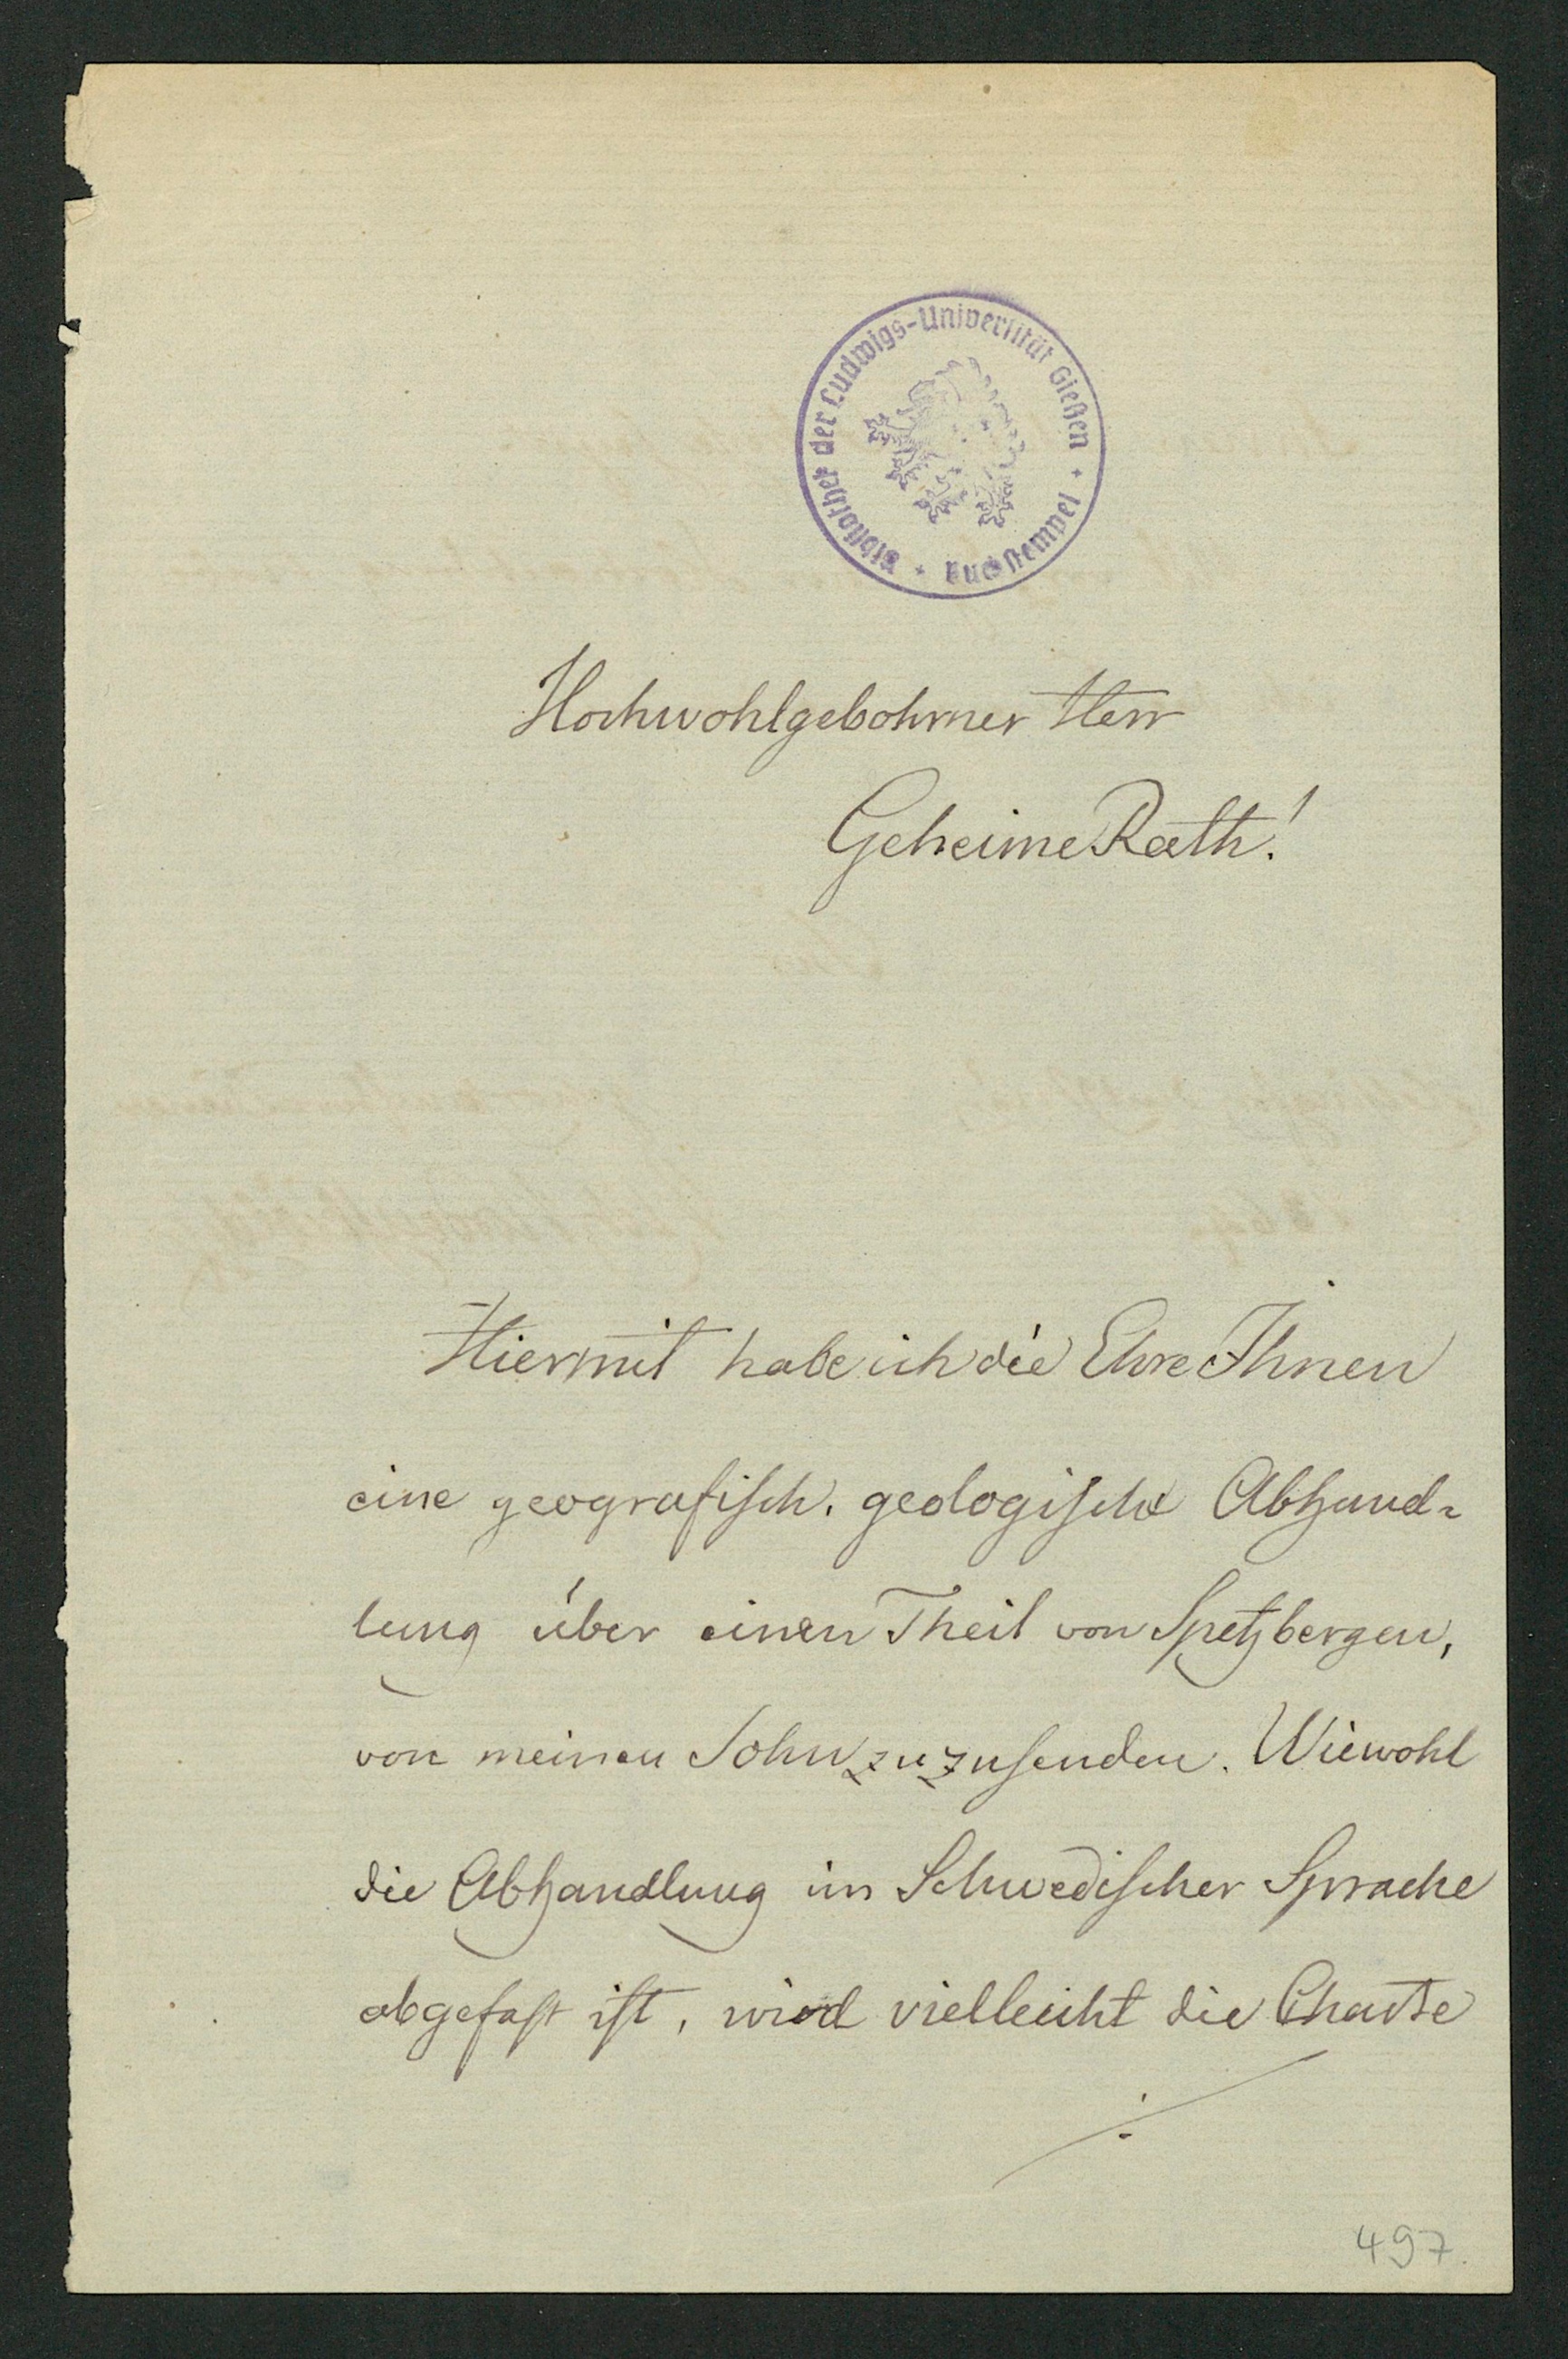 Bibliothek der Ludwigs-Universität Gießen + Buchstempel +
Hochwohlgebohrner Herr
Geheime Rath!
Hiermit habe ich die Ehre Ihnen
eine geografisch. geologische Abhand-
lung über einen Theil von Spetzbergen,
von meinen Sohn zuzusenden. Wiewohl
die Abhandlung in Schwedischer Sprache
abgefaßt ist, wird vielleicht die Charte
./.
497.